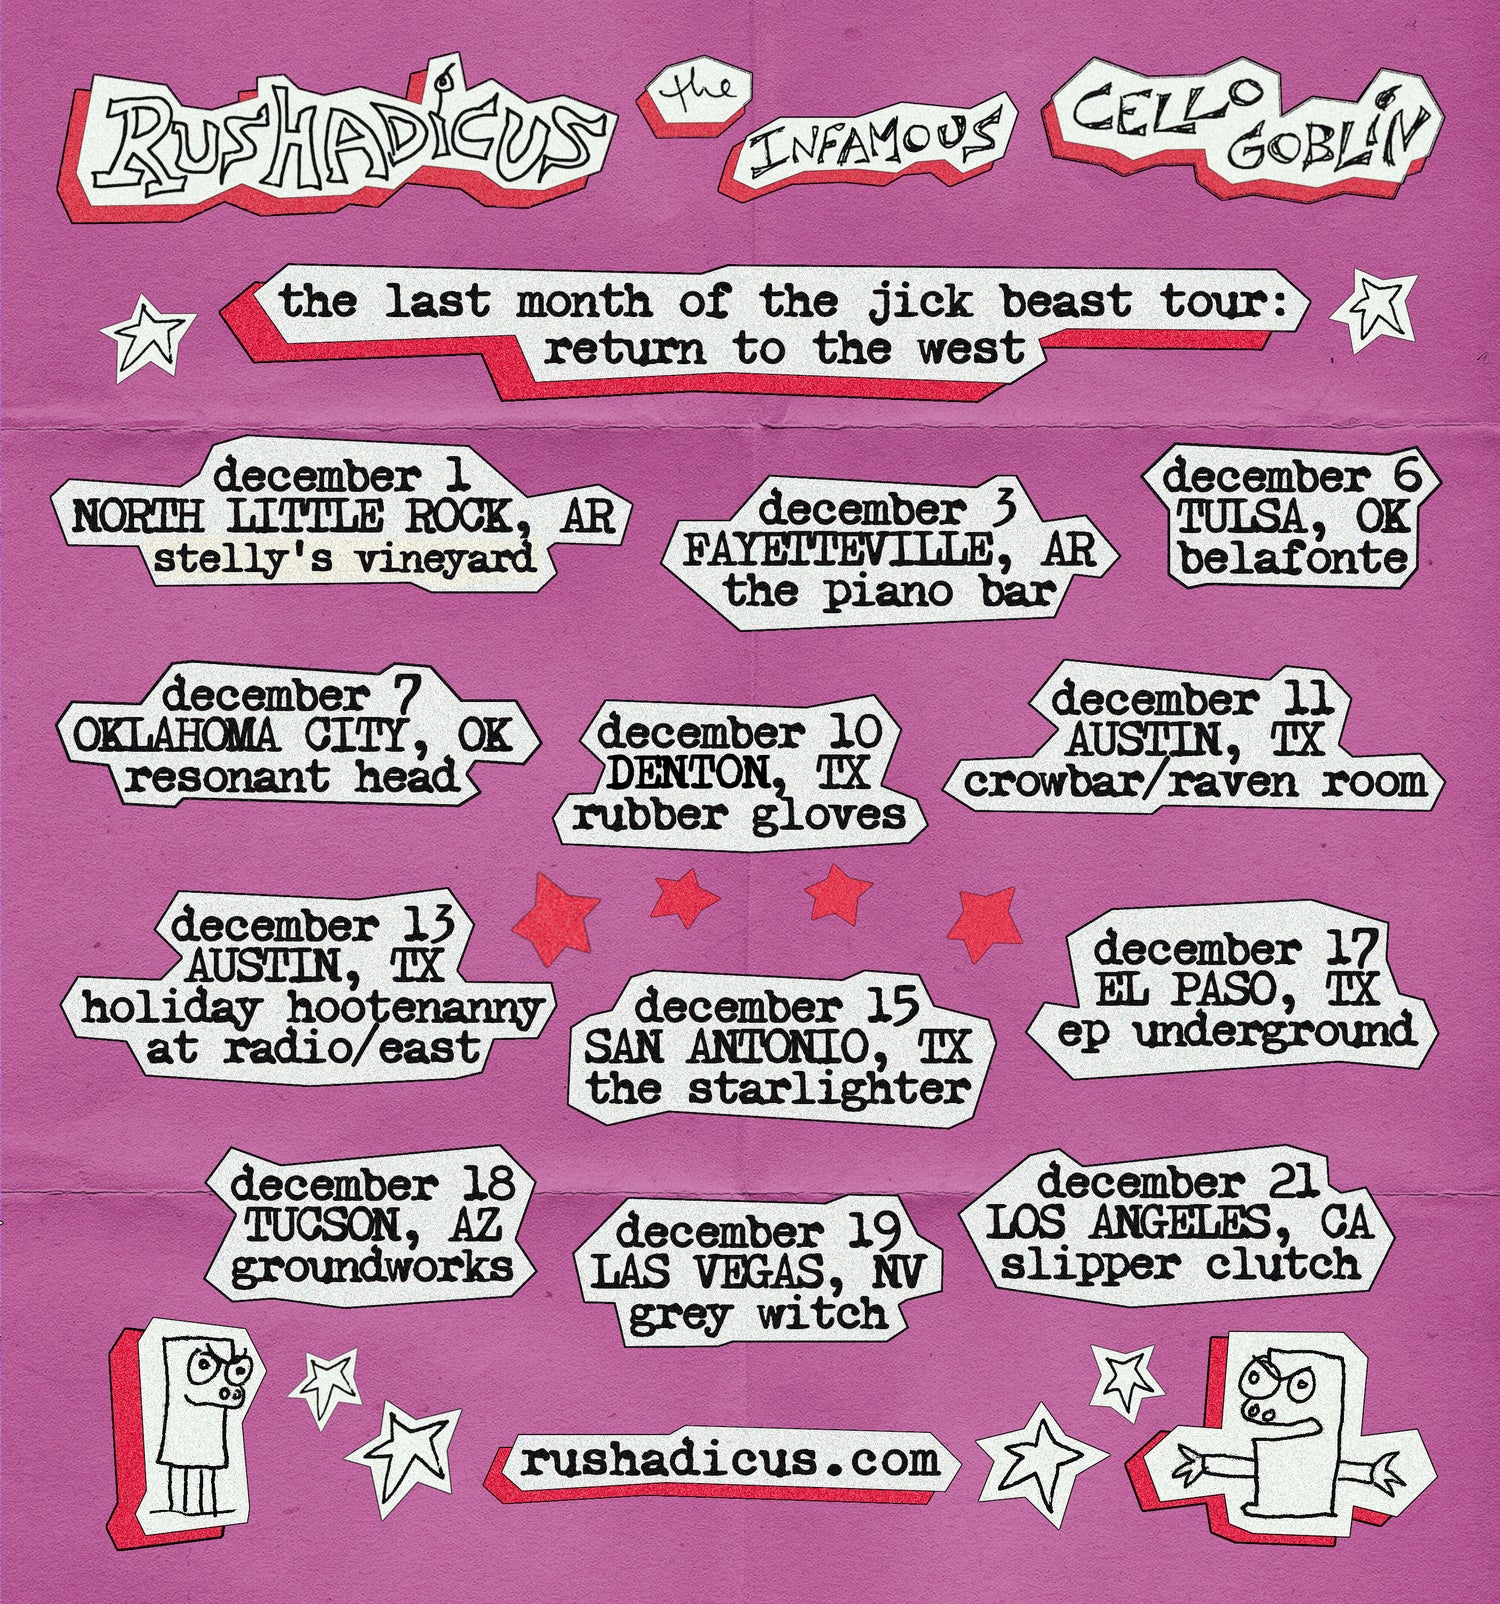 RUSHADICUS
the
INFAMOUS
CELLO
GOBLIN
the last month of the jick beast tour:
return to the west
december 1
NORTH LITTLE ROCK, AR
stelly's vineyard
december 3
FAYETTEVILLE, AR
the piano bar
december 6
TULSA, OK
belafonte
december 7
OKLAHOMA CITY, OK
resonant head
december 10
DENTON, TX
rubber gloves
december 11
AUSTIN, TX
crowbar/raven room
december 13
AUSTIN, TX
holiday hootenanny
at radio/east
december 15
SAN ANTONIO, TX
the starlighter
december 17
EL PASO, TX
ep underground
december 18
TUCSON, AZ
groundworks
december 19
LAS VEGAS, NV
grey witch
december 21
LOS ANGELES, CA
slipper clutch
rushadicus.com